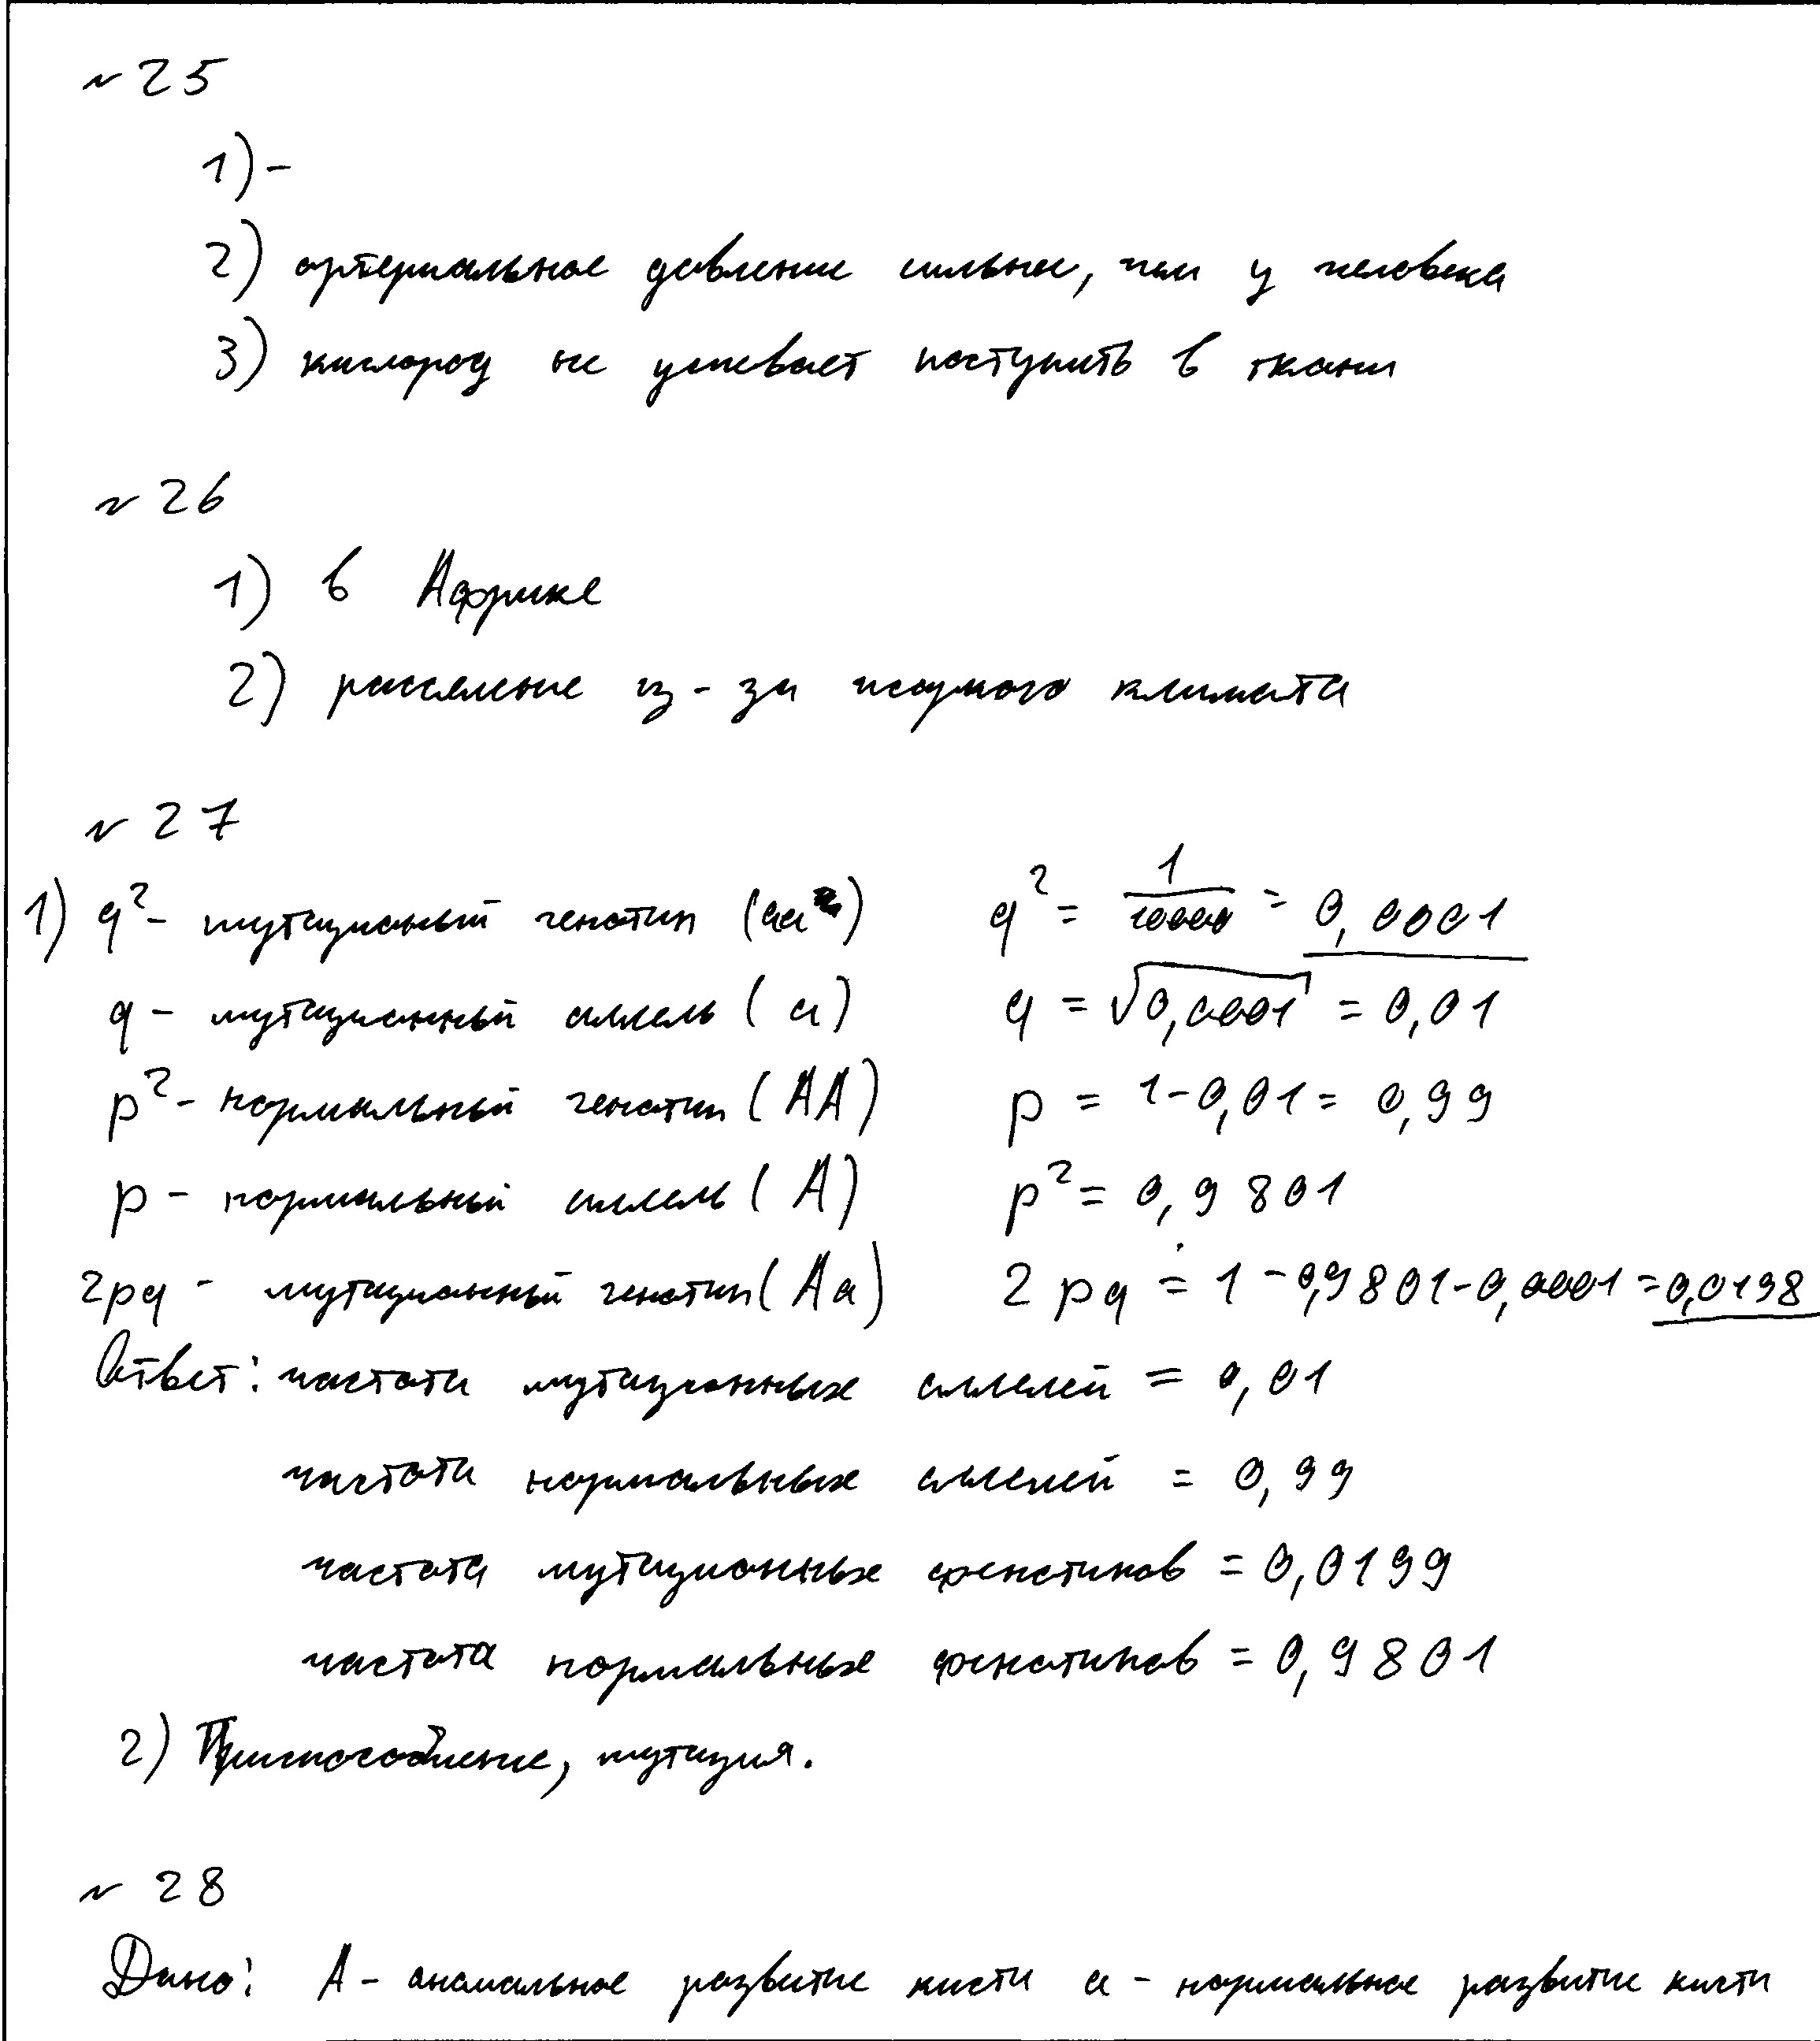 № 25
1) -
2) артериальное давление сильнее, чем у человека
3) кислород не успевает поступить в ткани
№ 26
1) в Африке
2) расселение из-за климата
№ 27
1) q² - мутационый генотип (aa) q² = 1/10000 = 0,0001
q - мутационный аллель (a) q = √0,0001 = 0,01
p² - нормальный генотип (AA) p = 1-0,01 = 0,99
p - нормальный аллель (A) p² = 0,9801
2pq - мутационный генотип (Aa) 2pq = 1-0,9801-0,0001 = 0,0198
Ответ: частота мутационных аллелей = 0,01
частота нормальных аллелей = 0,99
частота мутационных фенотипов = 0,0199
частота нормальных фенотипов = 0,9801
2) Приспособление, мутация.
№ 28
Дано: A - аномальное развитие кисти a - нормальное развитие кисти